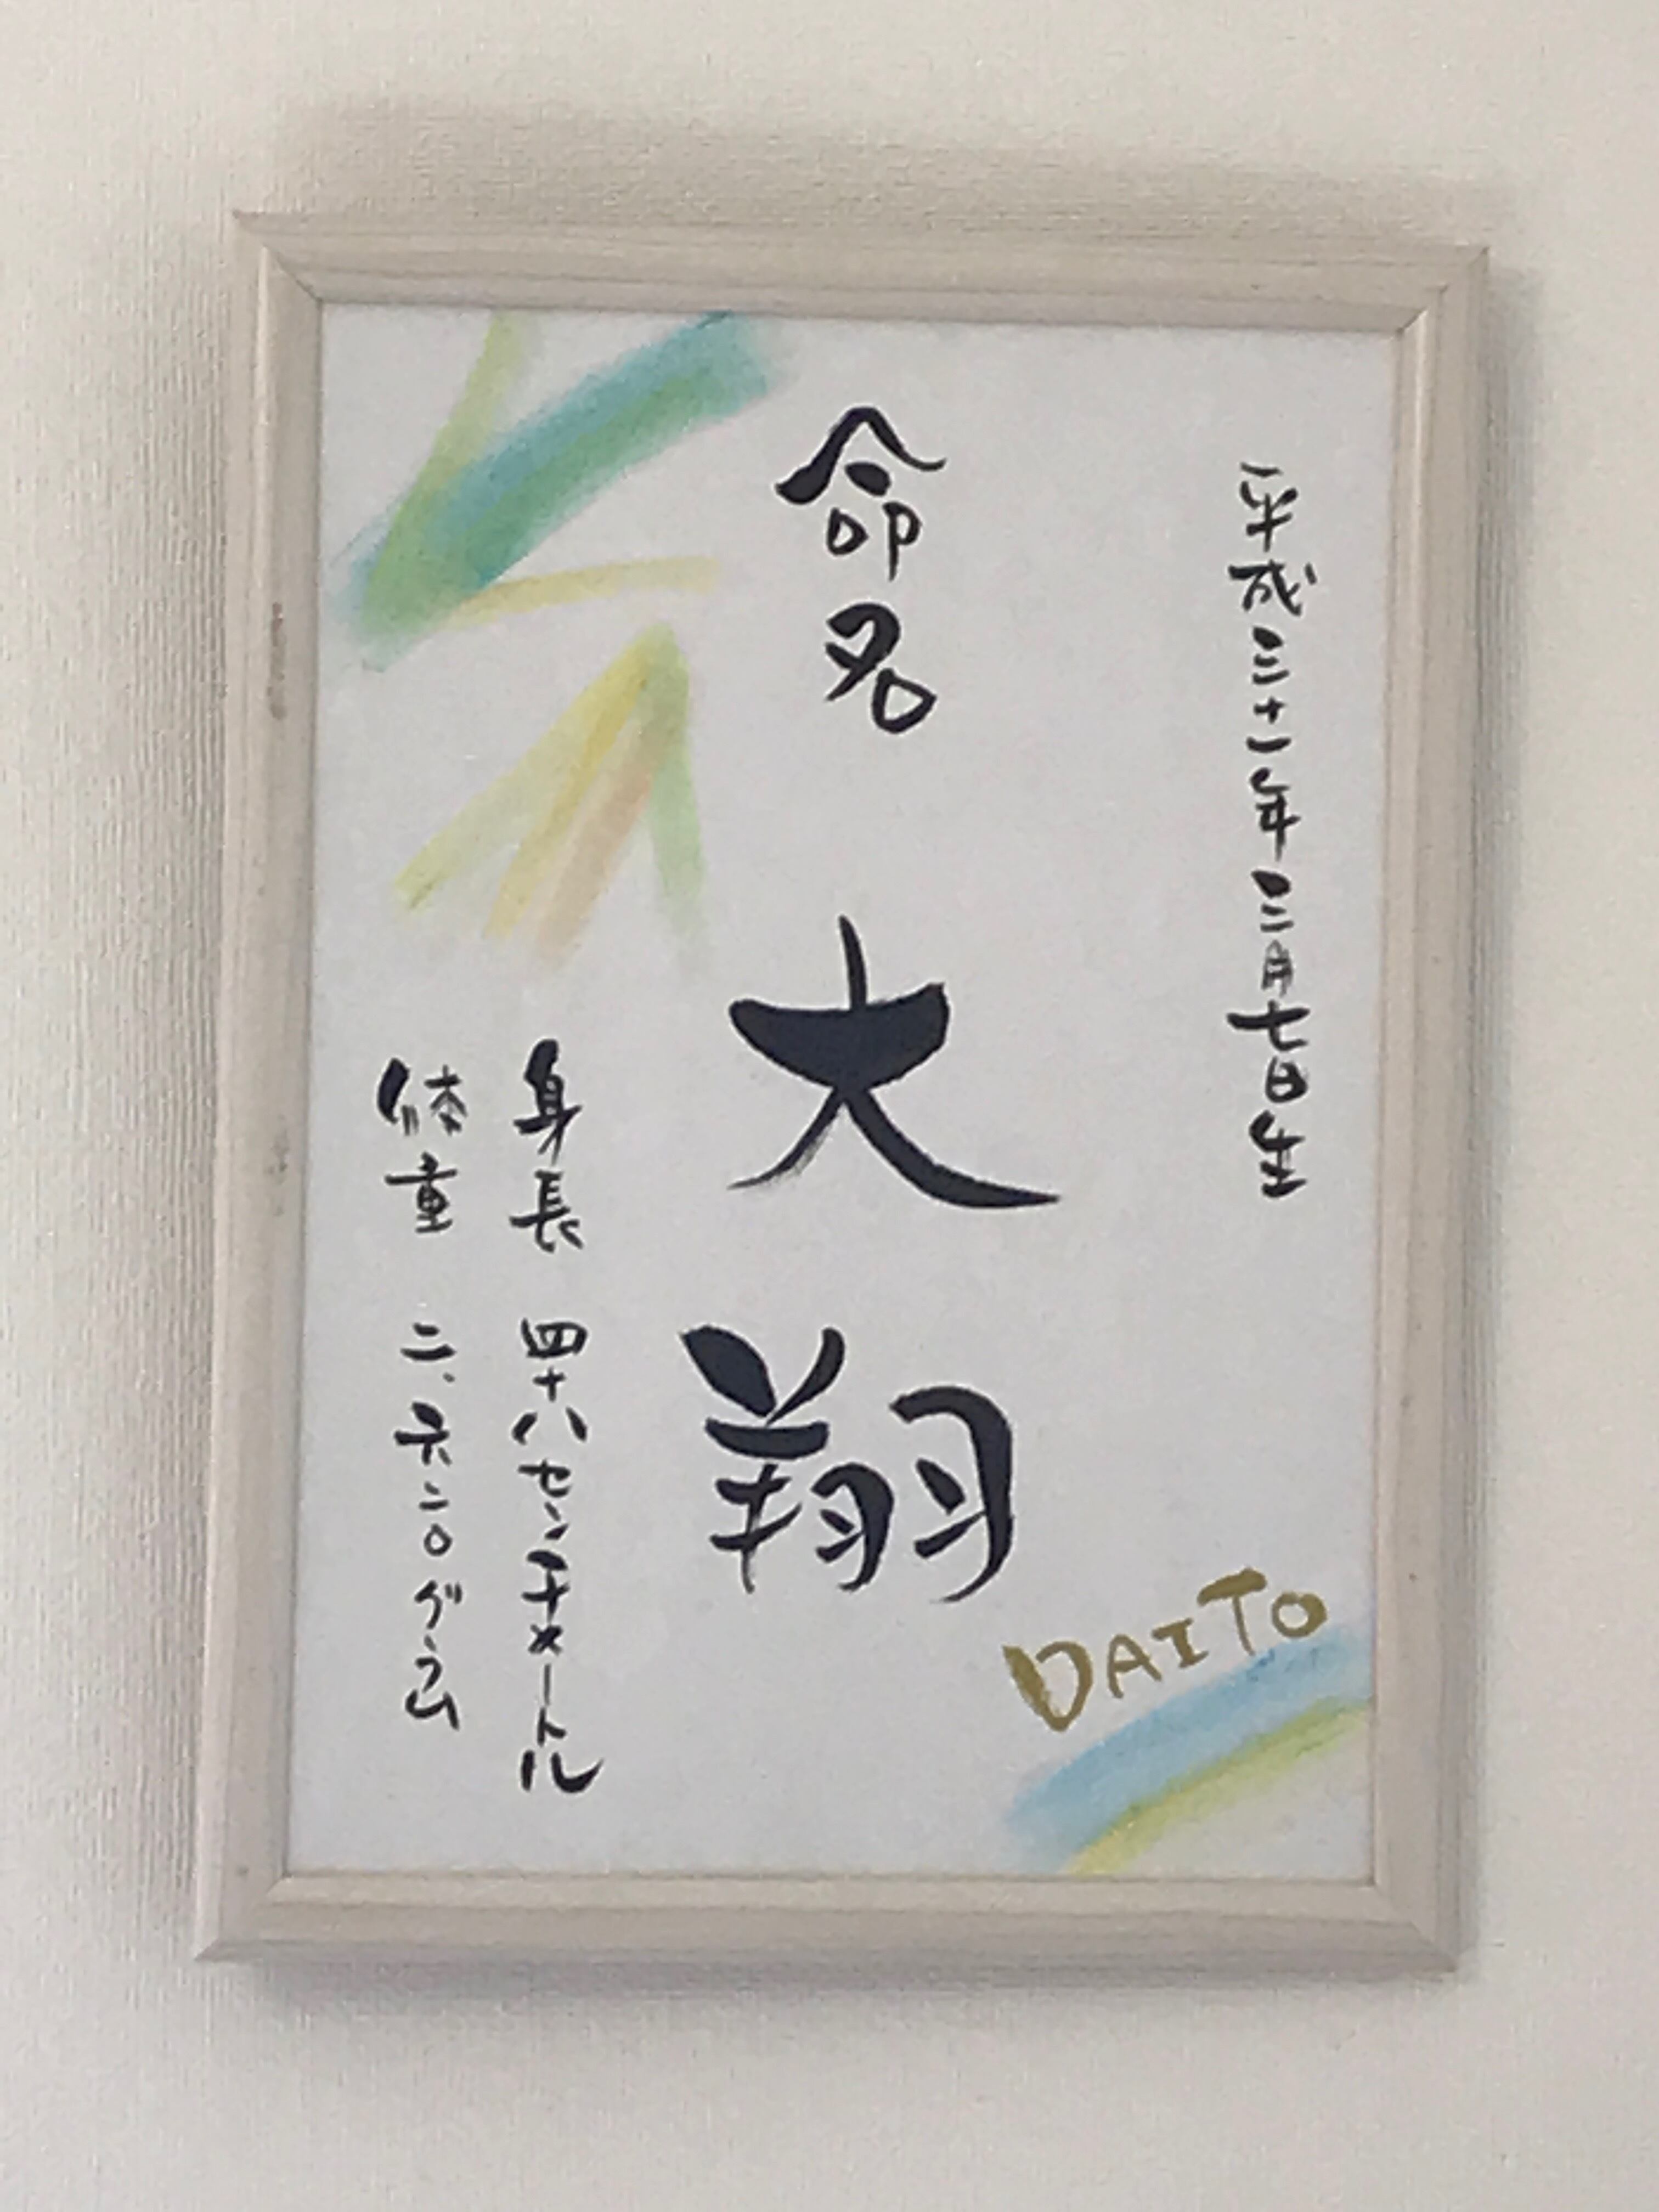 平成三十一年三月七日生
命名
大翔
DAITO
身長 四十八センチメートル
体重 二、六二〇グラム